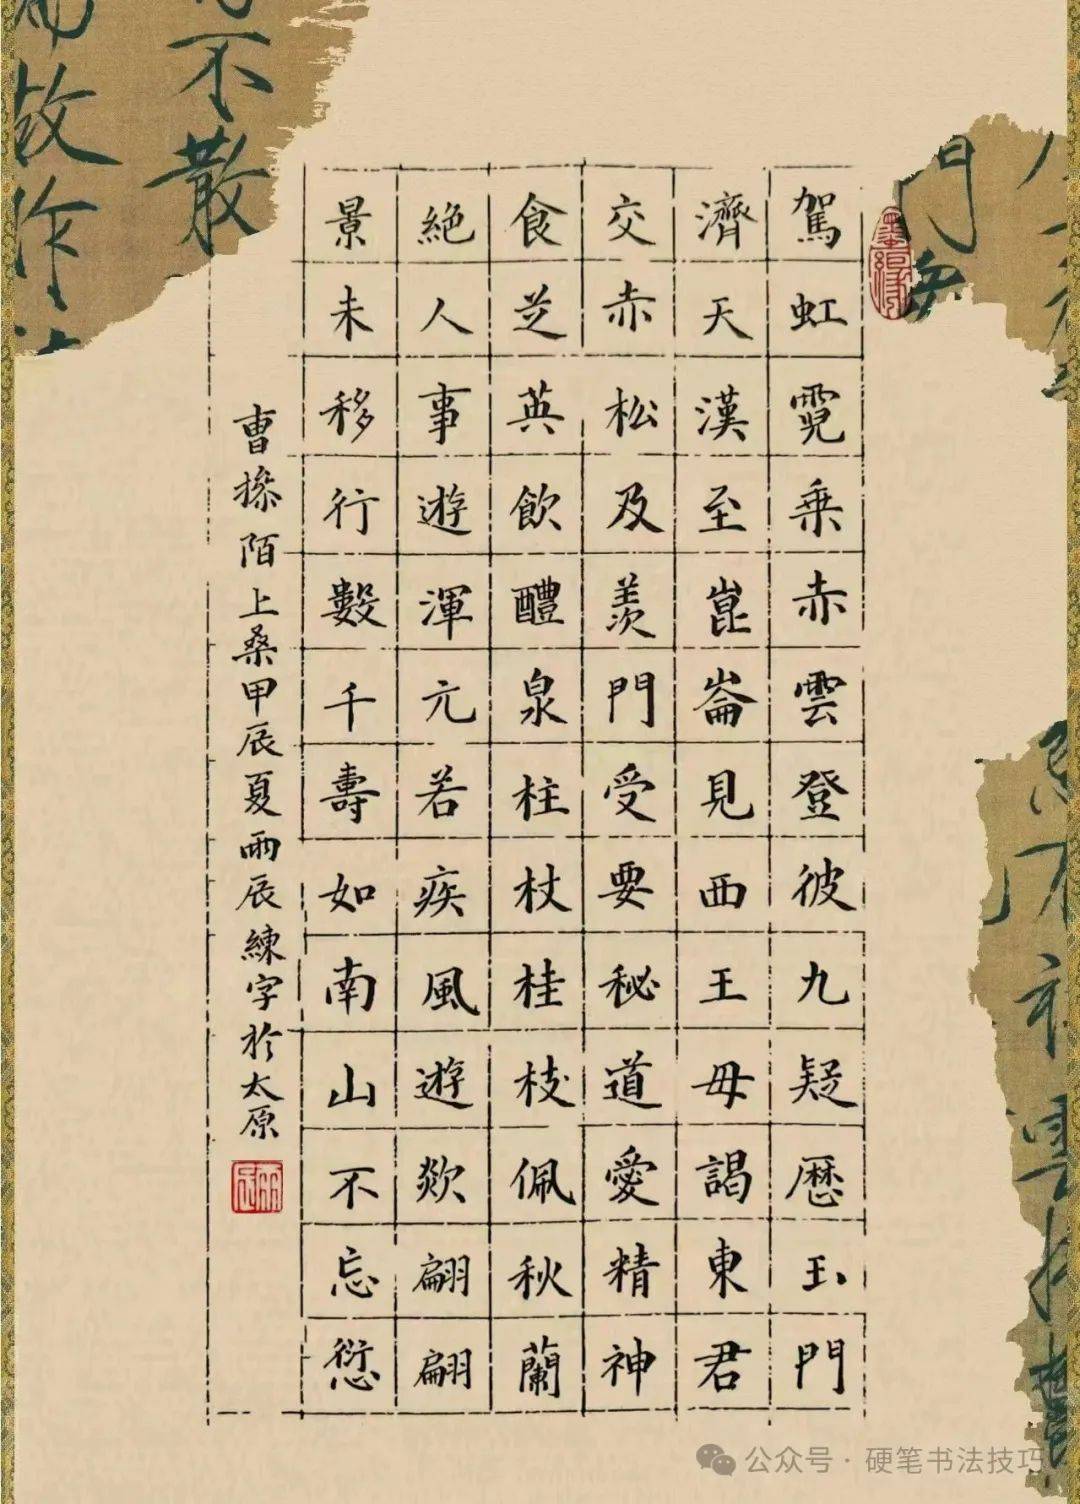 駕虹霓乗赤雲登彼九疑歷玉門
濟天漢至崑崙見西王母謁東君
交赤松及羨門受要秘道愛精神
食芝英飲醴泉柱杖桂枝佩秋蘭
絕人事遊渾元若疾風遊欻翩翩
景未移行數千壽如南山不忘愆
曹操陌上桑甲辰夏雨辰練字於太原
不散
故作
門
公众号·硬笔书法技巧